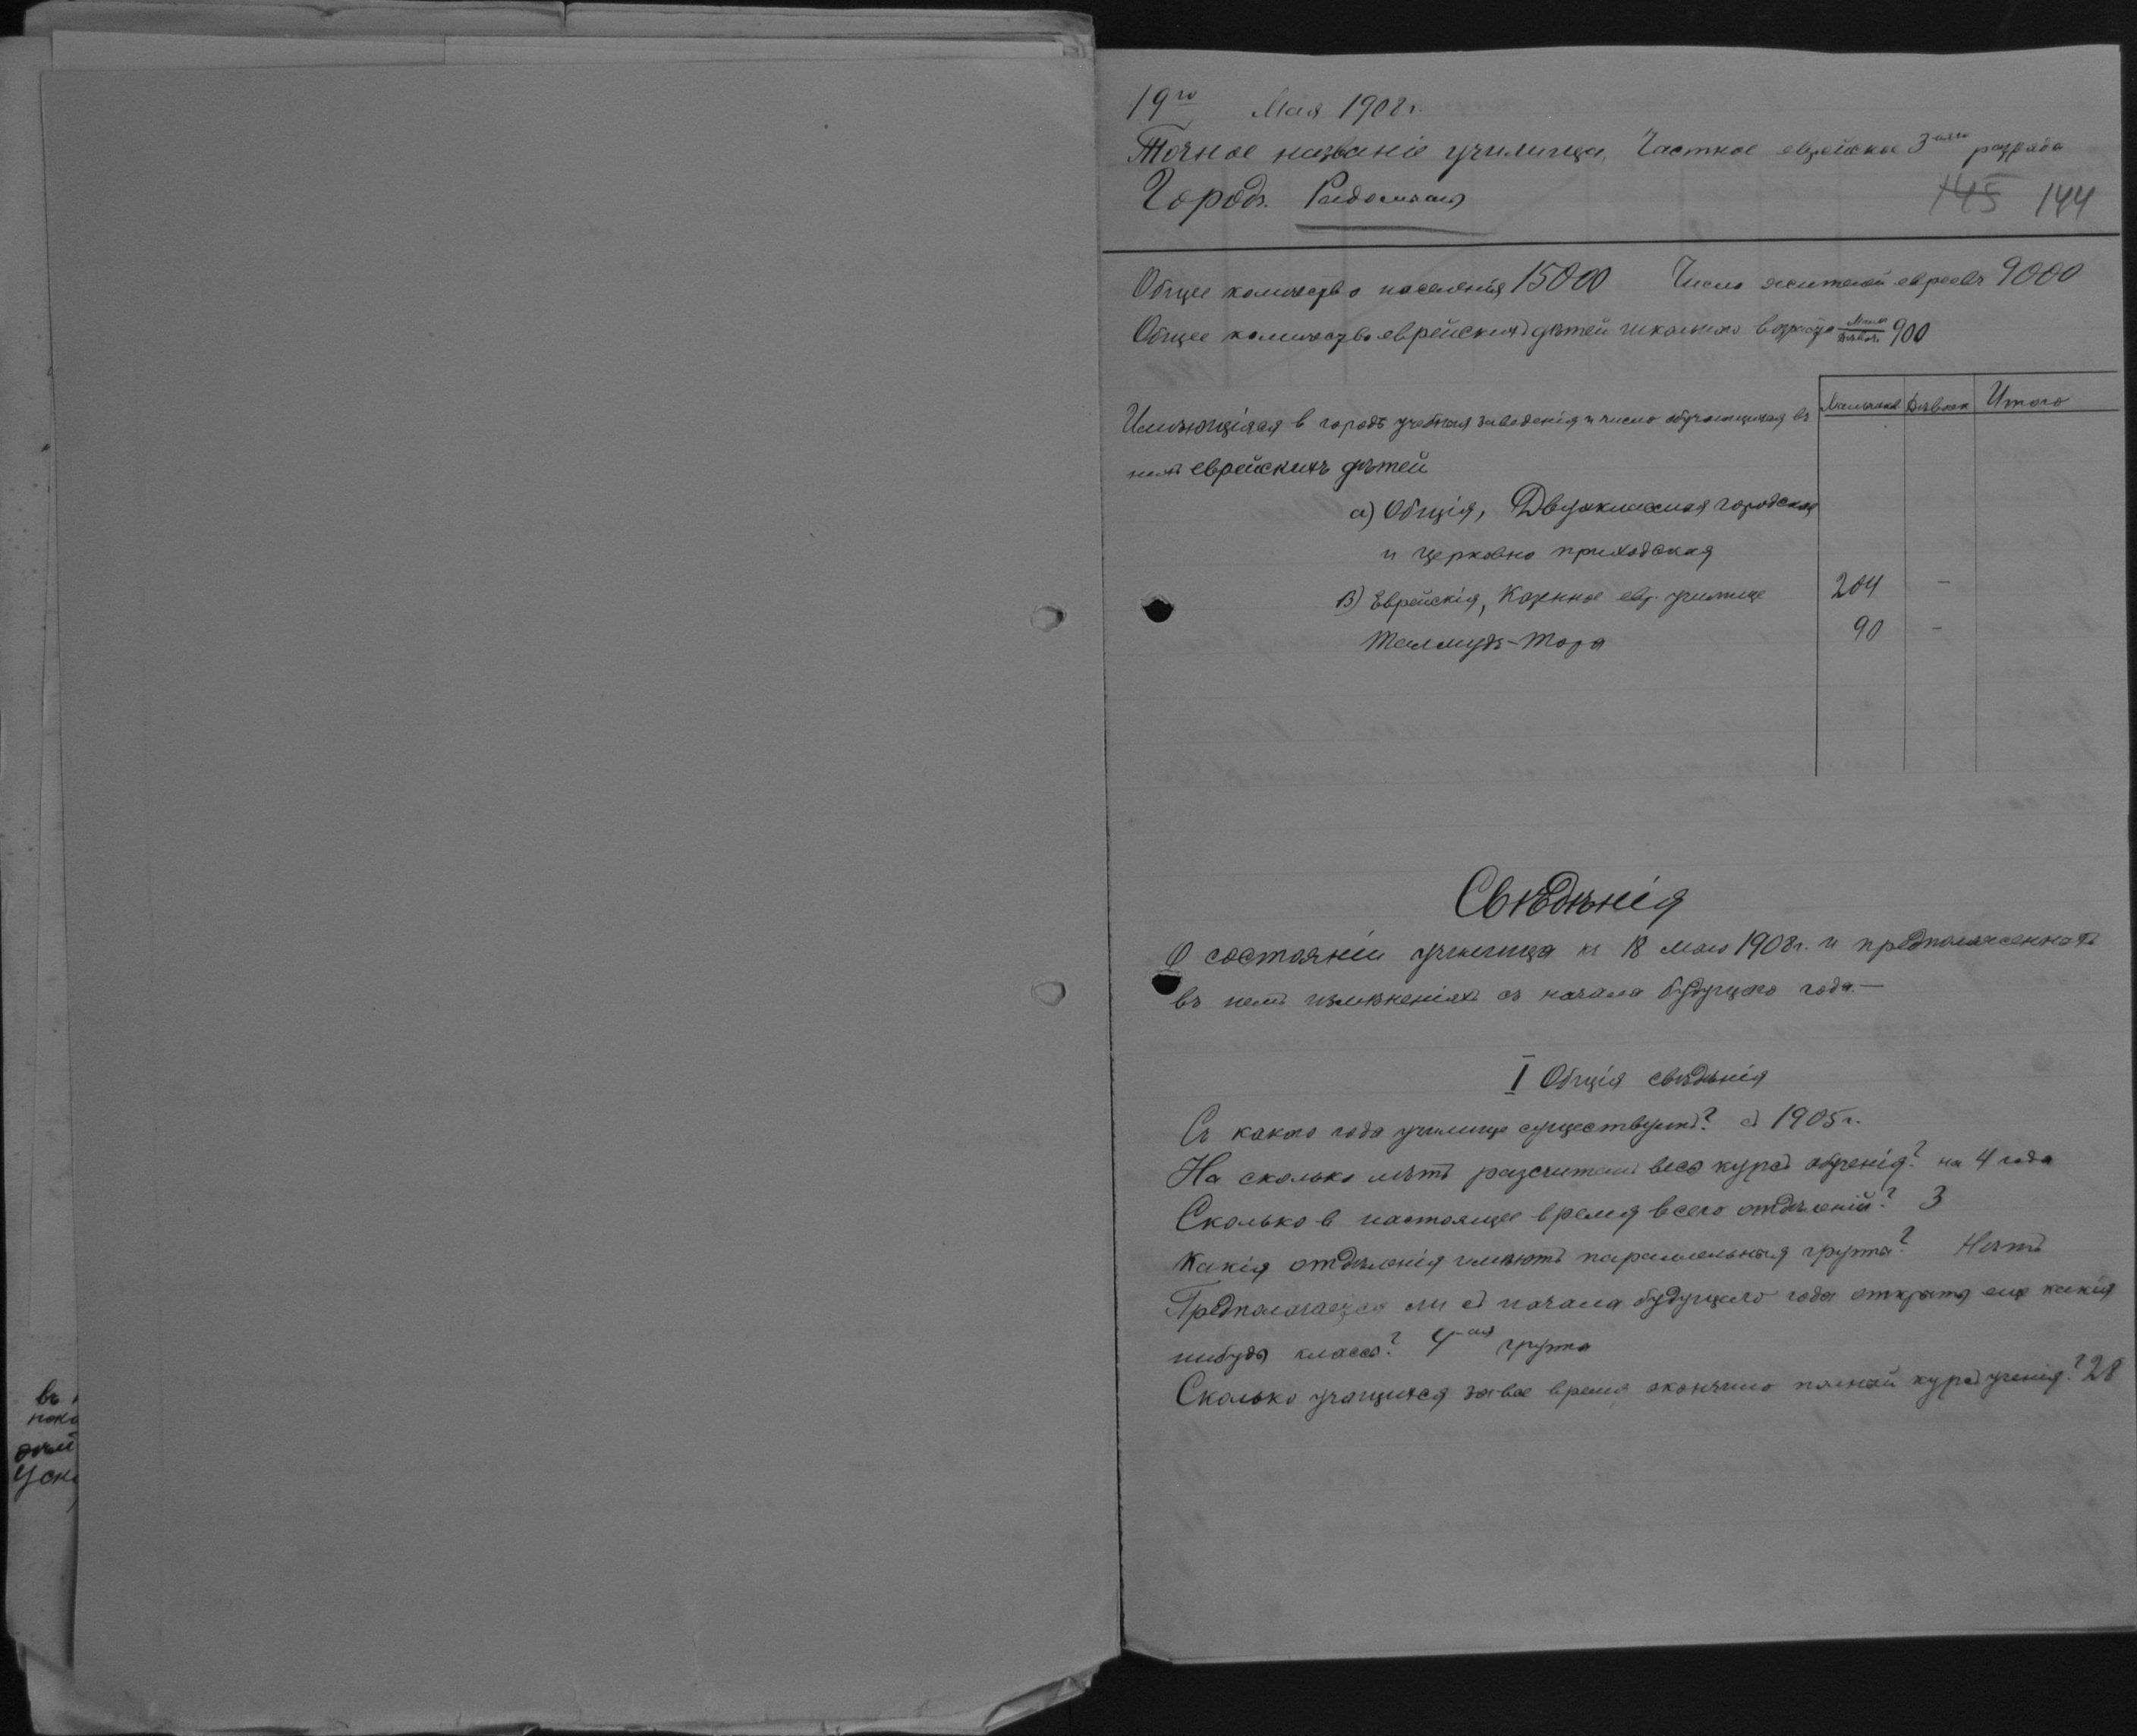 19го Мая 1908 г.
Точное названіе училища, Частное еврейское 3-аго разряда
Городъ. Радомысль
145 144
Общее количество населенія 15000 Число жителей евреевъ 9000
Общее количество еврейскихъ дѣтей школьнаго возраста Мальч. Дѣвоч. 900
Мальчиков Дѣвочек Итого
Имѣющіяся в городѣ учебныя заведенія и число обучающихся въ
нихъ еврейскихъ дѣтей
а) Общія, Двухклассная городская
и церковно приходская
В) Еврейскія, Казенное евр. училище 204 –
Талмудъ-Тора 90 –
Свѣдѣнія
О состояніи училища къ 18 мая 1908 г. и предположенныхъ
въ немъ измѣненіяхъ съ начала будущаго года.—
I Общія свѣдѣнія
Съ какого года училище существуетъ? съ 1905 г.
На сколько лѣтъ разсчитанъ весь курсъ обученія? на 4 года
Сколько в настоящее время всего отдѣленій? 3
Какія отдѣленія имѣютъ параллельныя группы? Нѣтъ
Предполагается ли съ начала будущаго года открыть еще какія
нибудь классы? 4-ая группа
Сколько учащихся за все время окончило полный курсъ ученія? 28
въ